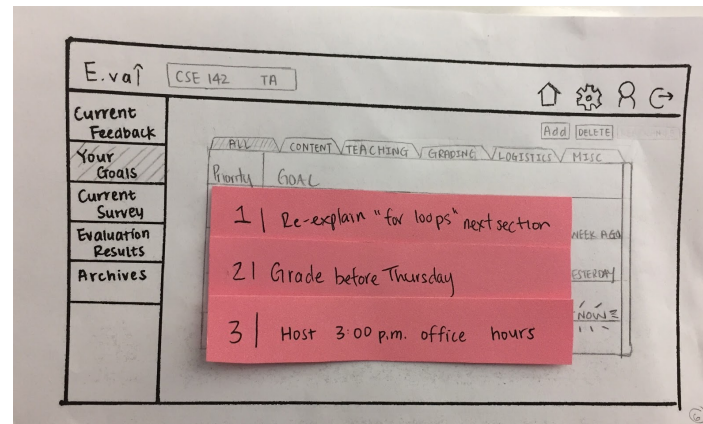 E.val
CSE 142 TA
Current
Feedback
Your
Goals
Current
Survey
Evaluation
Results
Archives
Add DELETE
ALL CONTENT TEACHING GRADING LOGISTICS MISC
Priority GOAL
1 | Re-explain "for loops" next section
WEEK AGO
2 | Grade before Thursday
YESTERDAY
3 | Host 3:00 p.m. office hours
NOW